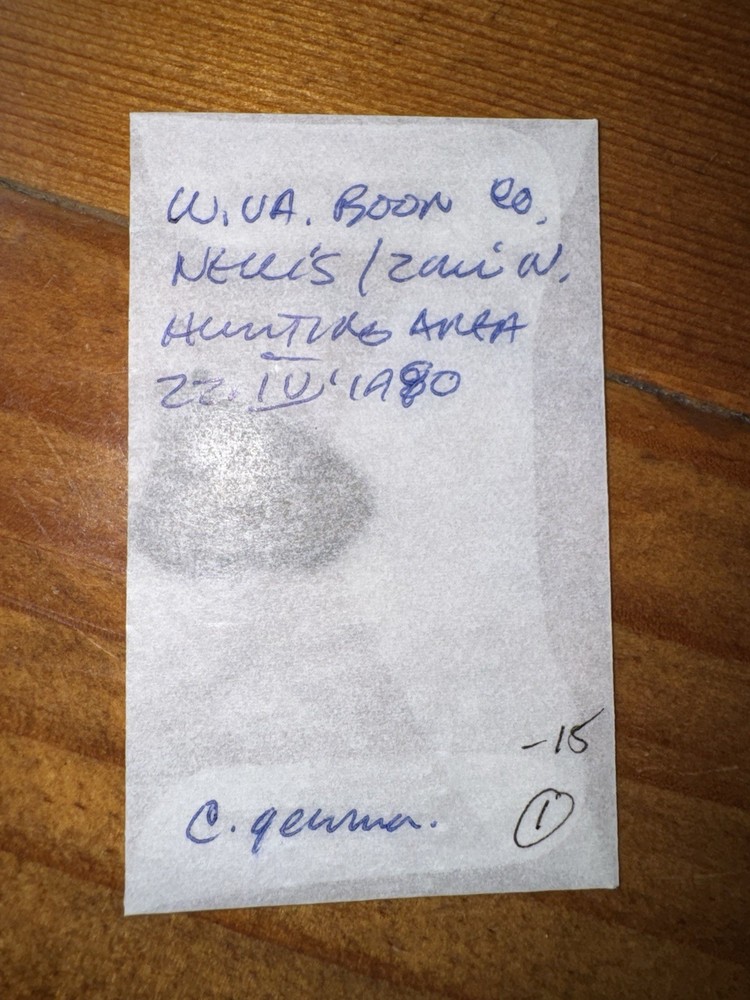 W.VA. BOON Co.
NELLIS / 2 mi N.
HUNTING AREA
22. IV '1980
-15
C. gemma.
1